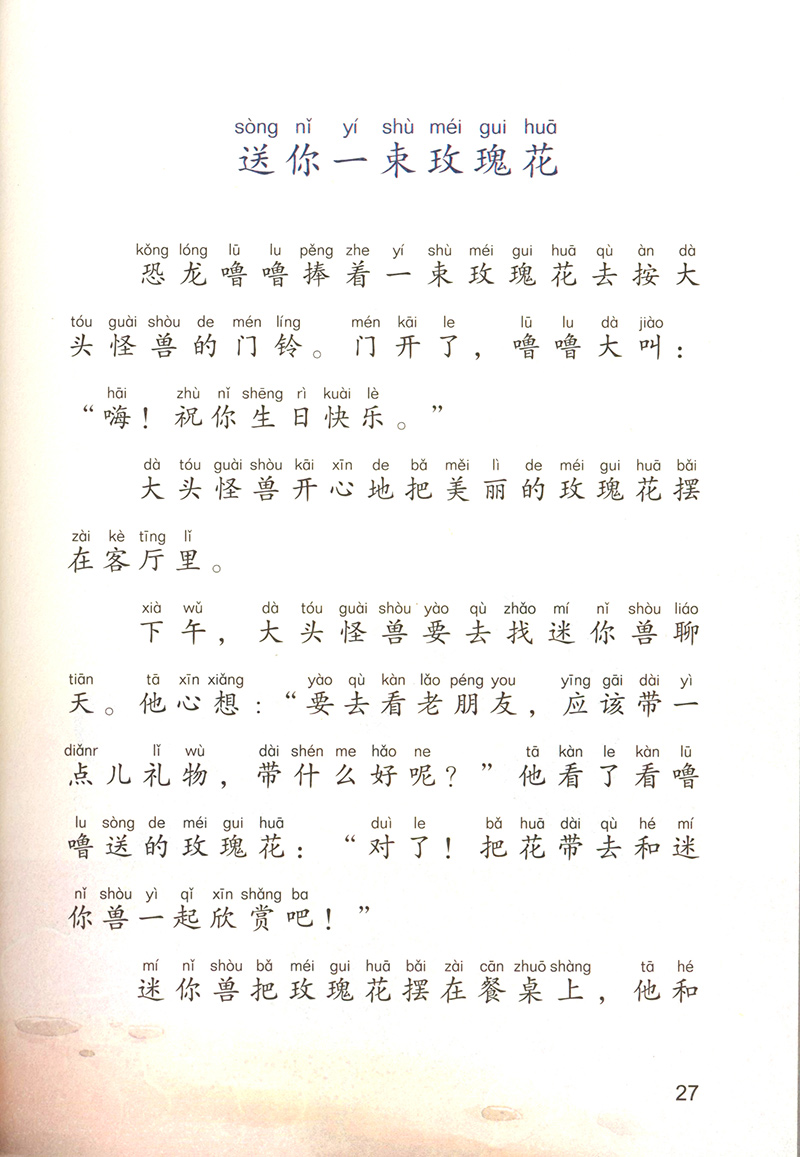 sòng nǐ yí shù méi gui huā
送你一束玫瑰花
kǒng lóng lū lu pěng zhe yí shù méi gui huā qù àn dà
恐龙噜噜捧着一束玫瑰花去按大
tóu guài shòu de mén líng mén kāi le lū lu dà jiào
头怪兽的门铃。门开了，噜噜大叫：
hāi zhù nǐ shēng rì kuài lè
“嗨！祝你生日快乐。”
dà tóu guài shòu kāi xīn de bǎ měi lì de méi gui huā bǎi
大头怪兽开心地把美丽的玫瑰花摆
zài kè tīng lǐ
在客厅里。
xià wǔ dà tóu guài shòu yào qù zhǎo mí nǐ shòu liáo
下午，大头怪兽要去找迷你兽聊
tiān tā xīn xiǎng yào qù kàn lǎo péng you yīng gāi dài yì
天。他心想：“要去看老朋友，应该带一
diǎnr lǐ wù dài shén me hǎo ne tā kàn le kàn lū
点儿礼物，带什么好呢？”他看了看噜
lu sòng de méi gui huā duì le bǎ huā dài qù hé mí
噜送的玫瑰花：“对了！把花带去和迷
nǐ shòu yì qǐ xīn shǎng ba
你兽一起欣赏吧！”
mí nǐ shòu bǎ méi gui huā bǎi zài cān zhuō shàng tā hé
迷你兽把玫瑰花摆在餐桌上，他和
27